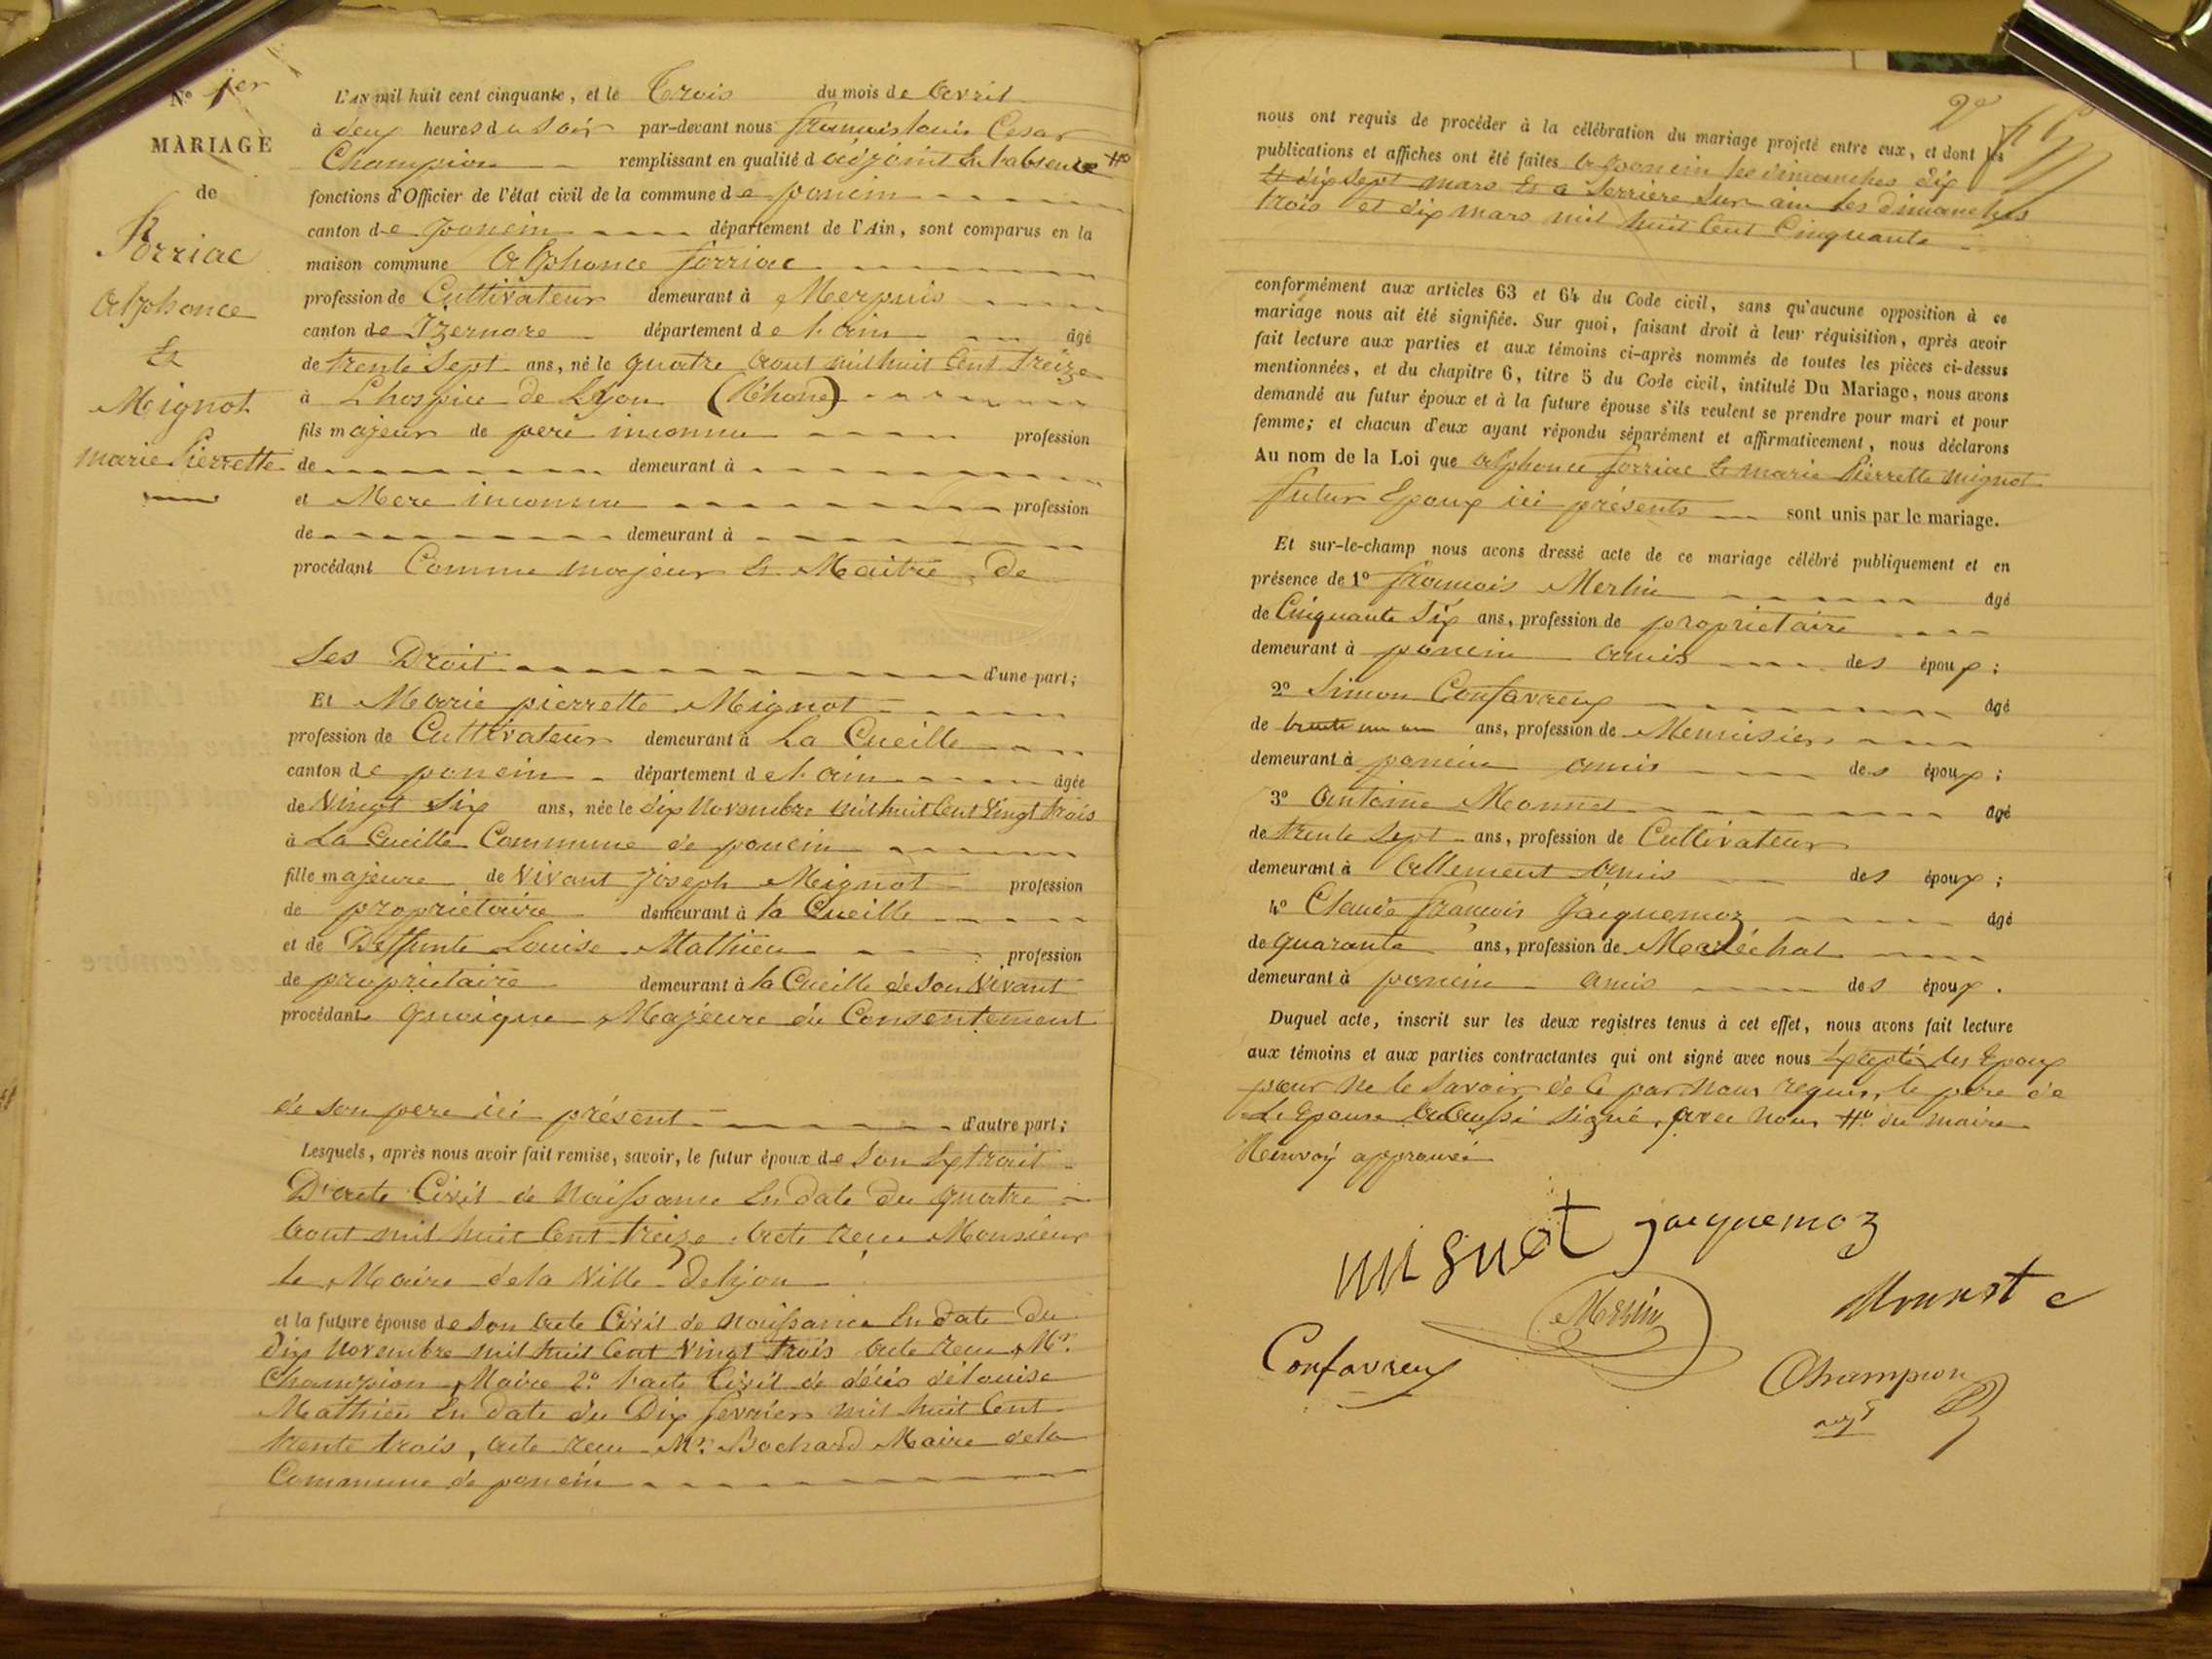 N° 1er
MARIAGE
de
Forriac
Alphonce
Et
Mignot
marie Pierrette
L'AN mil huit cent cinquante, et le Trois du mois de Avril
à deux heures du Soir par-devant nous francois louis Cesar
Champion remplissant en qualité d adjoint En l'absence #°
fonctions d'Officier de l'état civil de la commune de poncin
canton de poncin département de l'Ain, sont comparus en la
maison commune Alphonce forriac
profession de Cultivateur demeurant à Merpuis
canton de Izernore département de l'ain âgé
de trente Sept ans, né le quatre aout mil huit Cent treize
à L'hospice de Lyon (Rhone)
fils majeur de pere inconnu profession
de demeurant à
et Mere inconnu profession
de demeurant à
procédant Comme majeur Et Maitre de
Ses Droit d'une part;
Et Marie pierrette Mignot
profession de Cultivateur demeurant à La Cueille
canton de poncin département de l'ain âgée
de Vingt Six ans, née le dix Novembre mil huit Cent Vingt trois
à La Cueille Commune de poncin
fille majeure de Vivant Joseph Mignot profession
de proprietaire demeurant à la Cueille
et de Deffunte Louise Mathieu profession
de proprietaire demeurant à la Cueille de Son Vivant
procédant quoique Majeure du Consentement
de son pere ici présent d'autre part;
Lesquels, après nous avoir fait remise, savoir, le futur époux de Son Extrait
D'acte Civil de Naissance En date du quatre
aout mil huit Cent treize acte recu Monsieur
le Maire de la Ville de lyon
et la future épouse de Son acte Civil de Naissance En date du
Dix Novembre mil huit Cent Vingt trois acte recu Mr.
Champion Maire 2° l'acte Civil de décés de louise
Mathieu En date du Dix fevrier mil huit Cent
trente trois, acte recu Mr. Bochard Maire de la
Commune de poncin
2e
nous ont requis de procéder à la célébration du mariage projeté entre eux, et dont les
publications et affiches ont été faites a poncin les dimanches dix
Et dix Sept mars Et a Serriere Sur ain les dimanches
trois et dix mars mil huit Cent Cinquante
conformément aux articles 63 et 64 du Code civil, sans qu'aucune opposition à ce
mariage nous ait été signifiée. Sur quoi, faisant droit à leur réquisition, après avoir
fait lecture aux parties et aux témoins ci-après nommés de toutes les pièces ci-dessus
mentionnées, et du chapitre 6, titre 5 du Code civil, intitulé Du Mariage, nous avons
demandé au futur époux et à la future épouse s'ils veulent se prendre pour mari et pour
femme; et chacun d'eux ayant répondu séparément et affirmativement, nous déclarons
Au nom de la Loi que Alphonce forriac Et marie Pierrette mignot
futur Epoux ici présents sont unis par le mariage.
Et sur-le-champ nous avons dressé acte de ce mariage célébré publiquement et en
présence de 1° francois Merlin âgé
de Cinquante Six ans, profession de proprietaire
demeurant à poncin amis des époux;
2° Simon Confavreux âgé
de trente un ans, profession de Menuisier
demeurant à poncin amis des époux;
3° Antoine Monnet âgé
de trente Sept ans, profession de Cultivateur
demeurant à Allement amis des époux;
4° Claude francois Jacquemoz âgé
de quarante ans, profession de Maréchal
demeurant à poncin amis des époux.
Duquel acte, inscrit sur les deux registres tenus à cet effet, nous avons fait lecture
aux témoins et aux parties contractantes qui ont signé avec nous Excepté les Epoux
pour Ne le Savoir de Ce par Nous requis, le pere de
L'Epouse a aussi Signé, avec Nous #° du maire
Renvoy approuvé
mignot jacquemoz
Merlin
Confavreux
Champion
adjt